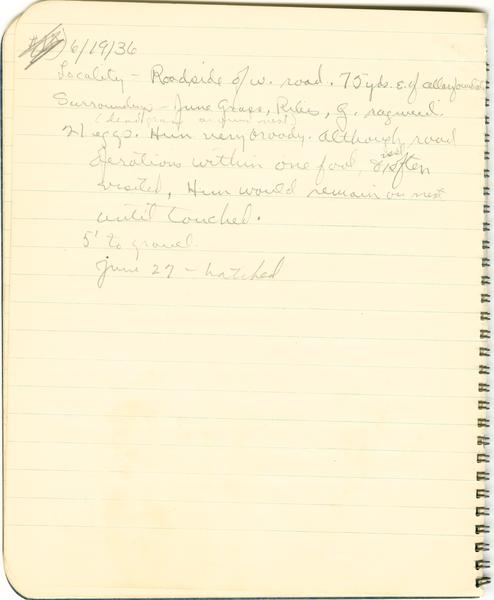 6/19/36
Locality - Roadside of w. road. 75 yds. e. of
Surroundings - June Grass, Ribes, g. ragweed.
(dead grass nest)
21 eggs. Hun very broody. Although road
operations within one food, & nest often
visited, Hun would remain on nest
until touched.
5' to gravel.
June 27 - hatched